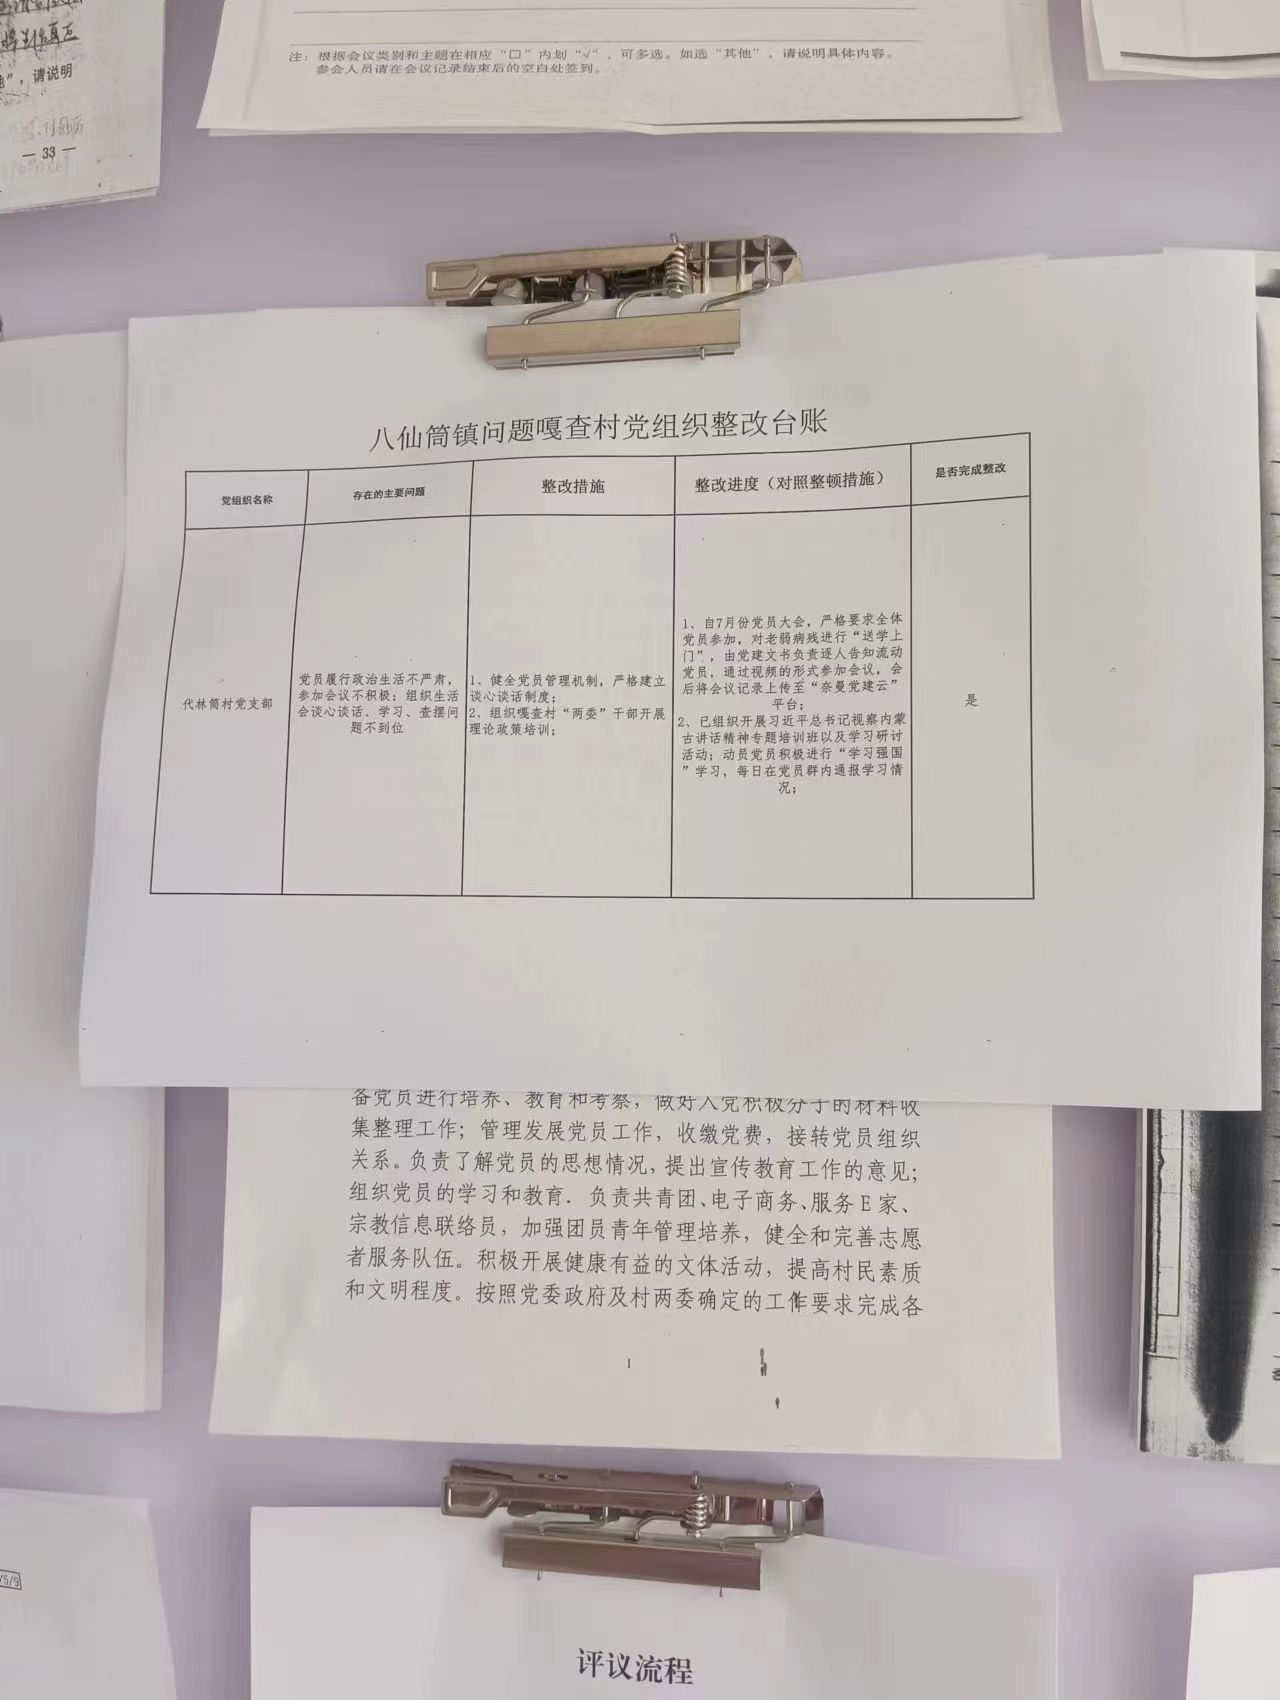 ”，请说明
— 33 —
注：根据会议类别和主题在相应“口”内划“√”，可多选。如选“其他”，请说明具体内容。
参会人员请在会议记录结束后的空白处签到。
八仙筒镇问题嘎查村党组织整改台账
党组织名称
存在的主要问题
整改措施
整改进度（对照整顿措施）
是否完成整改
代林筒村党支部
党员履行政治生活不严肃，
参加会议不积极；组织生活
会谈心谈话、学习、查摆问
题不到位
1、健全党员管理机制，严格建立
谈心谈话制度；
2、组织嘎查村“两委”干部开展
理论政策培训；
1、自7月份党员大会，严格要求全体
党员参加，对老弱病残进行“送学上
门”，由党建文书负责逐人告知流动
党员，通过视频的形式参加会议，会
后将会议记录上传至“奈曼党建云”
平台；
2、已组织开展习近平总书记视察内蒙
古讲话精神专题培训班以及学习研讨
活动；动员党员积极进行“学习强国
”学习，每日在党员群内通报学习情
况；
是
备党员进行培养、教育和考察，做好入党积极分子的材料收
集整理工作；管理发展党员工作，收缴党费，接转党员组织
关系。负责了解党员的思想情况，提出宣传教育工作的意见；
组织党员的学习和教育．负责共青团、电子商务、服务E家、
宗教信息联络员，加强团员青年管理培养，健全和完善志愿
者服务队伍。积极开展健康有益的文体活动，提高村民素质
和文明程度。按照党委政府及村两委确定的工作要求完成各
/5/9
评议流程